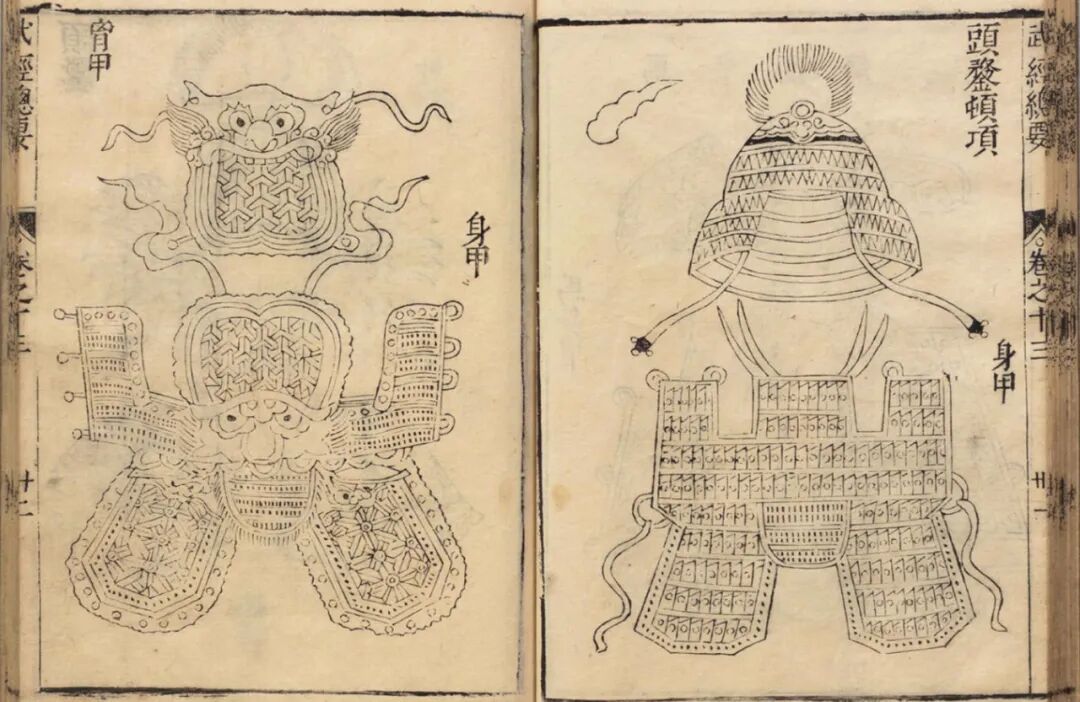 武經總要
卷之十三
廿一
頭鍪頓項
身甲
身甲
胷甲
武經總要
卷之十三
廿二